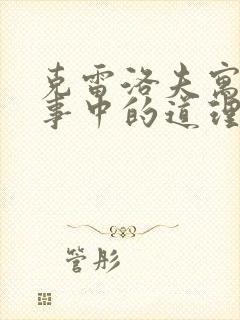 克雷洛夫寓
事中的道理
管彤